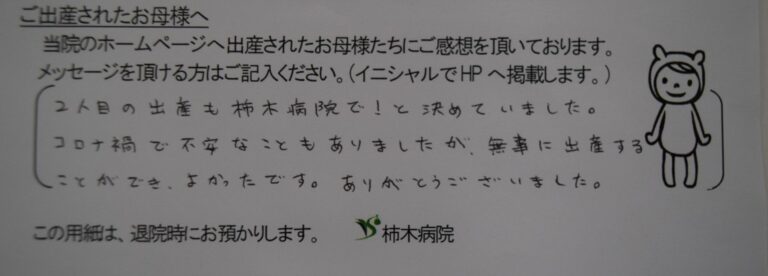 ご出産されたお母様へ
当院のホームページへ出産されたお母様たちにご感想を頂いております。
メッセージを頂ける方はご記入ください。(イニシャルでHPへ掲載します。)
2人目の出産も柿木病院で!と決めていました。
コロナ禍で不安なこともありましたが、無事に出産する
ことができ、よかったです。ありがとうございました。
この用紙は、退院時にお預かりします。 柿木病院